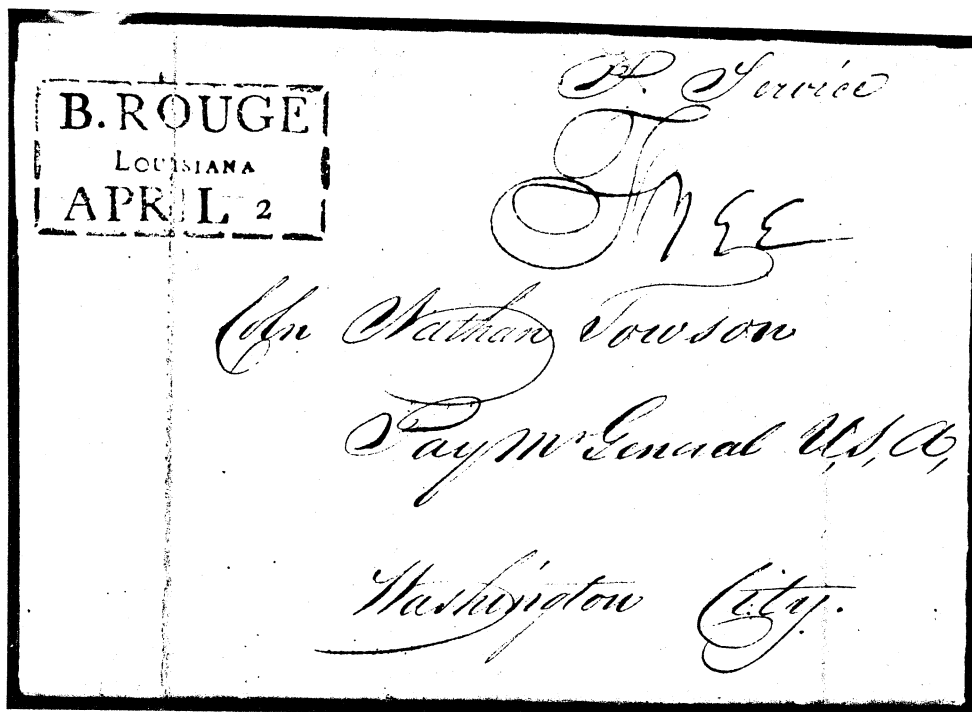 B. ROUGE
LOUISIANA
APRIL 2
P. Service
Free
Coln Nathan Towson
Paymr General U,S,A,
Washington City.